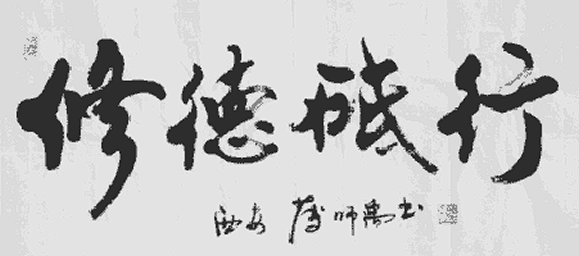 修德砥行
西安 薄师禹书